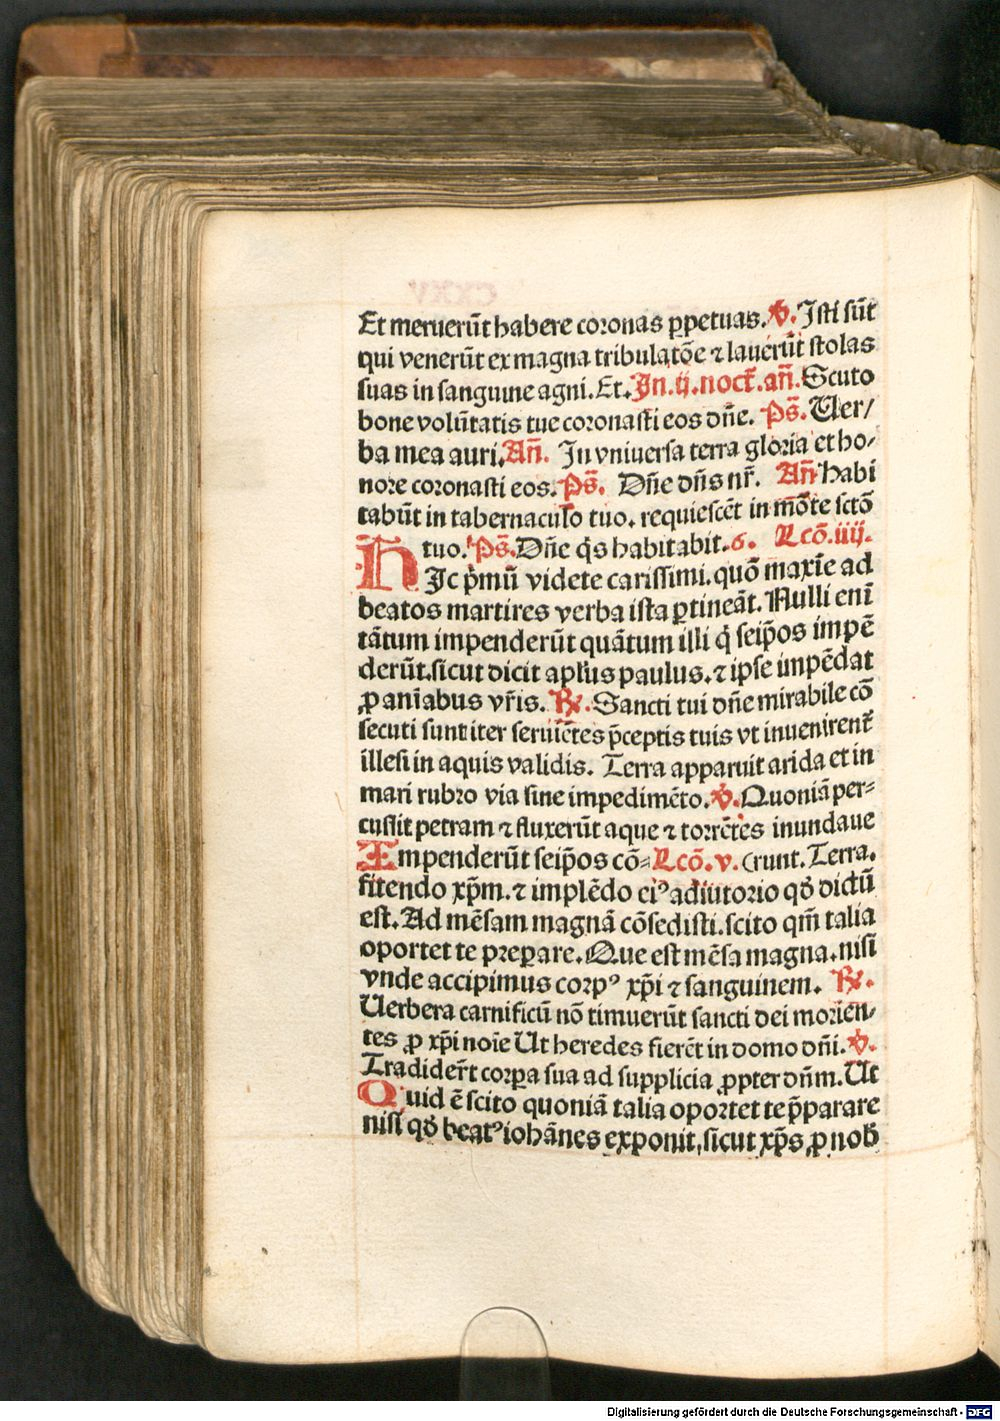 Et meruerūt habere coronas ꝑpetuas. ℣. Isti sūt
qui venerūt ex magna tribulatōe ⁊ lauerūt stolas
suas in sanguine agni. Et. In .ij. noct̄. an̄. Scuto
bone volūtatis tue coronasti eos dn̄e. Ps̄. Uer/
ba mea auri. An̄. In vniuersa terra gloria et ho/
nore coronasti eos. Ps̄. Dn̄e dn̄s nr̄. An̄ habi
tabūt in tabernaculo tuo. requiescēt in mōte sctō
tuo. Ps̄. Dn̄e q̄s habitabit. 6. Lcō. iiij.
HIc p̄mū videte carissimi. quō maxīe ad
beatos martires verba ista ꝑtineāt. Nulli enī
tātum impenderūt quātum illi q̄ seip̄os impē
derūt. sicut dicit apl'us paulus. ⁊ ipse impēdat
ꝓ anīabus vr̄is. ℟. Sancti tui dn̄e mirabile cō
secuti sunt iter seruiētes p̄ceptis tuis vt inuenirent̄
illesi in aquis validis. Terra apparuit arida et in
mari rubro via sine impedimēto. ℣. Quoniā per⸗
cussit petram ⁊ fluxerūt aque ⁊ torrētes inundaue
Impenderūt seip̄os cō⸗ Lcō. v. (runt. Terra.
fitendo xp̄m. ⁊ implēdo eiꝰ adiutorio qd̄ dictū
est. Ad mēsam magnā cōsedisti. scito qm̄ talia
oportet te preꝑare. Que est mēsa magna. nisi
vnde accipimus corpꝰ xp̄i ⁊ sanguinem. ℟.
Uerbera carnificū nō timuerūt sancti dei morien/
tes ꝓ xp̄i noīe Ut heredes fierēt in domo dn̄i. ℣.
Tradider̄t corꝑa sua ad supplicia ꝓpter dn̄m. Ut
Quid ē scito quoniā talia oportet te p̄parare
nisi qd̄ beatꝰ iohānes exponit, sicut xp̄s ꝓ nob̄
Digitalisierung gefördert durch die Deutsche Forschungsgemeinschaft - DFG